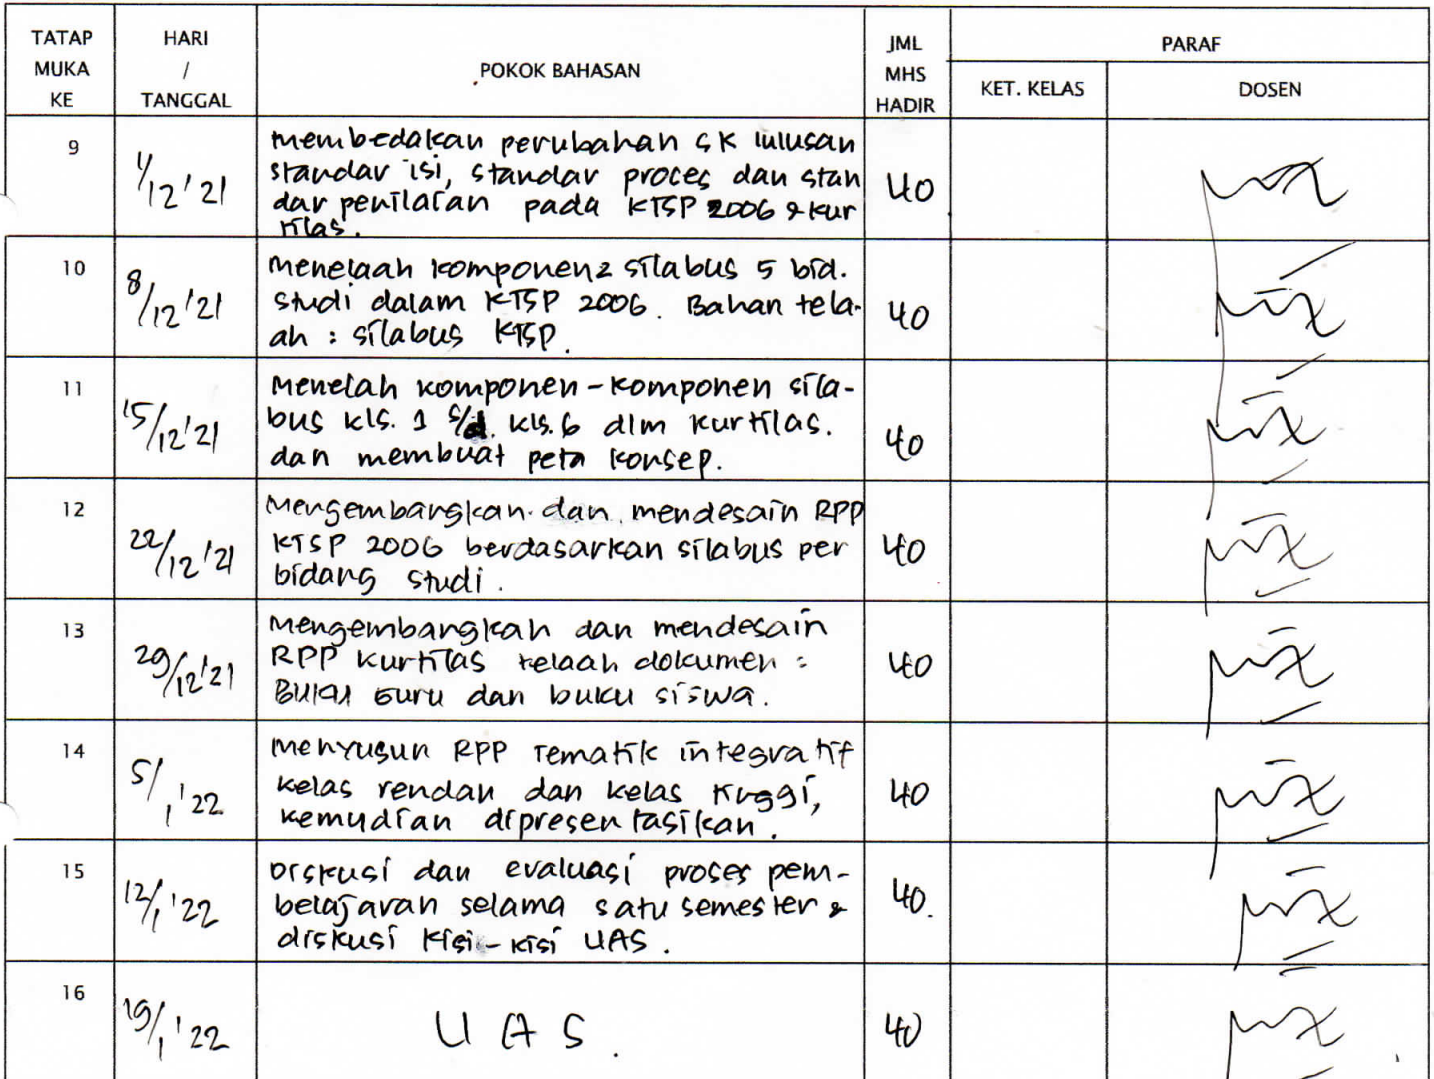 TATAP MUKA KE
HARI / TANGGAL
POKOK BAHASAN
JML MHS HADIR
PARAF
KET. KELAS
DOSEN
9
1/12 '21
membedakan perubahan SK lulusan
standar isi, standar proses dan stan
dar penilaian pada KTSP 2006 & kur
tilas.
40
10
8/12 '21
Menelaah komponen2 silabus 5 bid.
studi dalam KTSP 2006. Bahan tela-
ah : silabus KTSP.
40
11
15/12 '21
Menelah komponen-komponen sila-
bus kls. 1 s/d. kls. 6 dlm kurtilas.
dan membuat peta konsep.
40
12
22/12 '21
Mengembangkan dan mendesain RPP
KTSP 2006 berdasarkan silabus per
bidang studi.
40
13
29/12 '21
Mengembangkan dan mendesain
RPP kurtilas telaah dokumen :
Buku Guru dan buku siswa.
40
14
5/1 '22
Menyusun RPP Tematik integratif
kelas rendah dan kelas tinggi,
kemudian dipresentasikan.
40
15
12/1 '22
Diskusi dan evaluasi proses pem-
belajaran selama satu semester &
diskusi kisi-kisi UAS.
40.
16
19/1 '22
UAS.
40